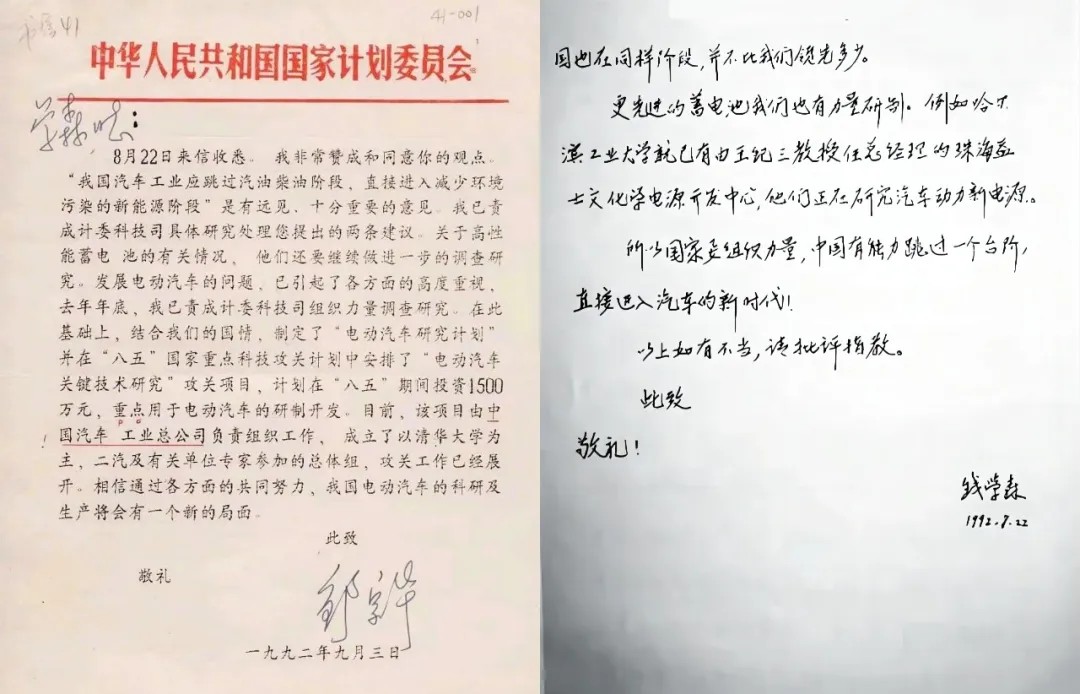 书信41
41-001
中华人民共和国国家计划委员会
学森同志：
8月22日来信收悉。我非常赞成和同意你的观点。
“我国汽车工业应跳过汽油柴油阶段，直接进入减少环境
污染的新能源阶段”是有远见、十分重要的意见。我已责
成计委科技司具体研究处理您提出的两条建议。关于高性
能蓄电 池的有关情况， 他们还要继续做进一步的调查研
究。发展电动汽车的问题，已引起了各方面的高度重视，
去年年底，我已责成计委科技司组织力量调查研究。在此
基础上，结合我们的国情，制定了“电动汽车研究计划”
并在“八五”国家重点科技攻关计划中安排了“电动汽车
关键技术研究”攻关项目，计划在“八五”期间投资1500
万元，重点用于电动汽车的研制开发。目前，该项目由中
国汽车 工业总公司负责组织工作， 成立了以清华大学为
主，二汽及有关单位专家参加的总体组，攻关工作已经展
开。相信通过各方面的共同努力，我国电动汽车的科研及
生产将会有一个新的局面。
此致
敬礼
邹家华
一九九二年九月三日
国也在同样阶段，并不比我们领先多少。
更先进的蓄电池我们也有力量研制。例如哈尔
滨工业大学就已有由王纪三教授任总经理的珠海益
士文化学电源开发中心，他们正在研究汽车动力新电源。
所以国家要组织力量，中国有能力跳过一个台阶，
直接进入汽车的新时代！
以上如有不当，请批评指教。
此致
敬礼！
钱学森
1992.8.22